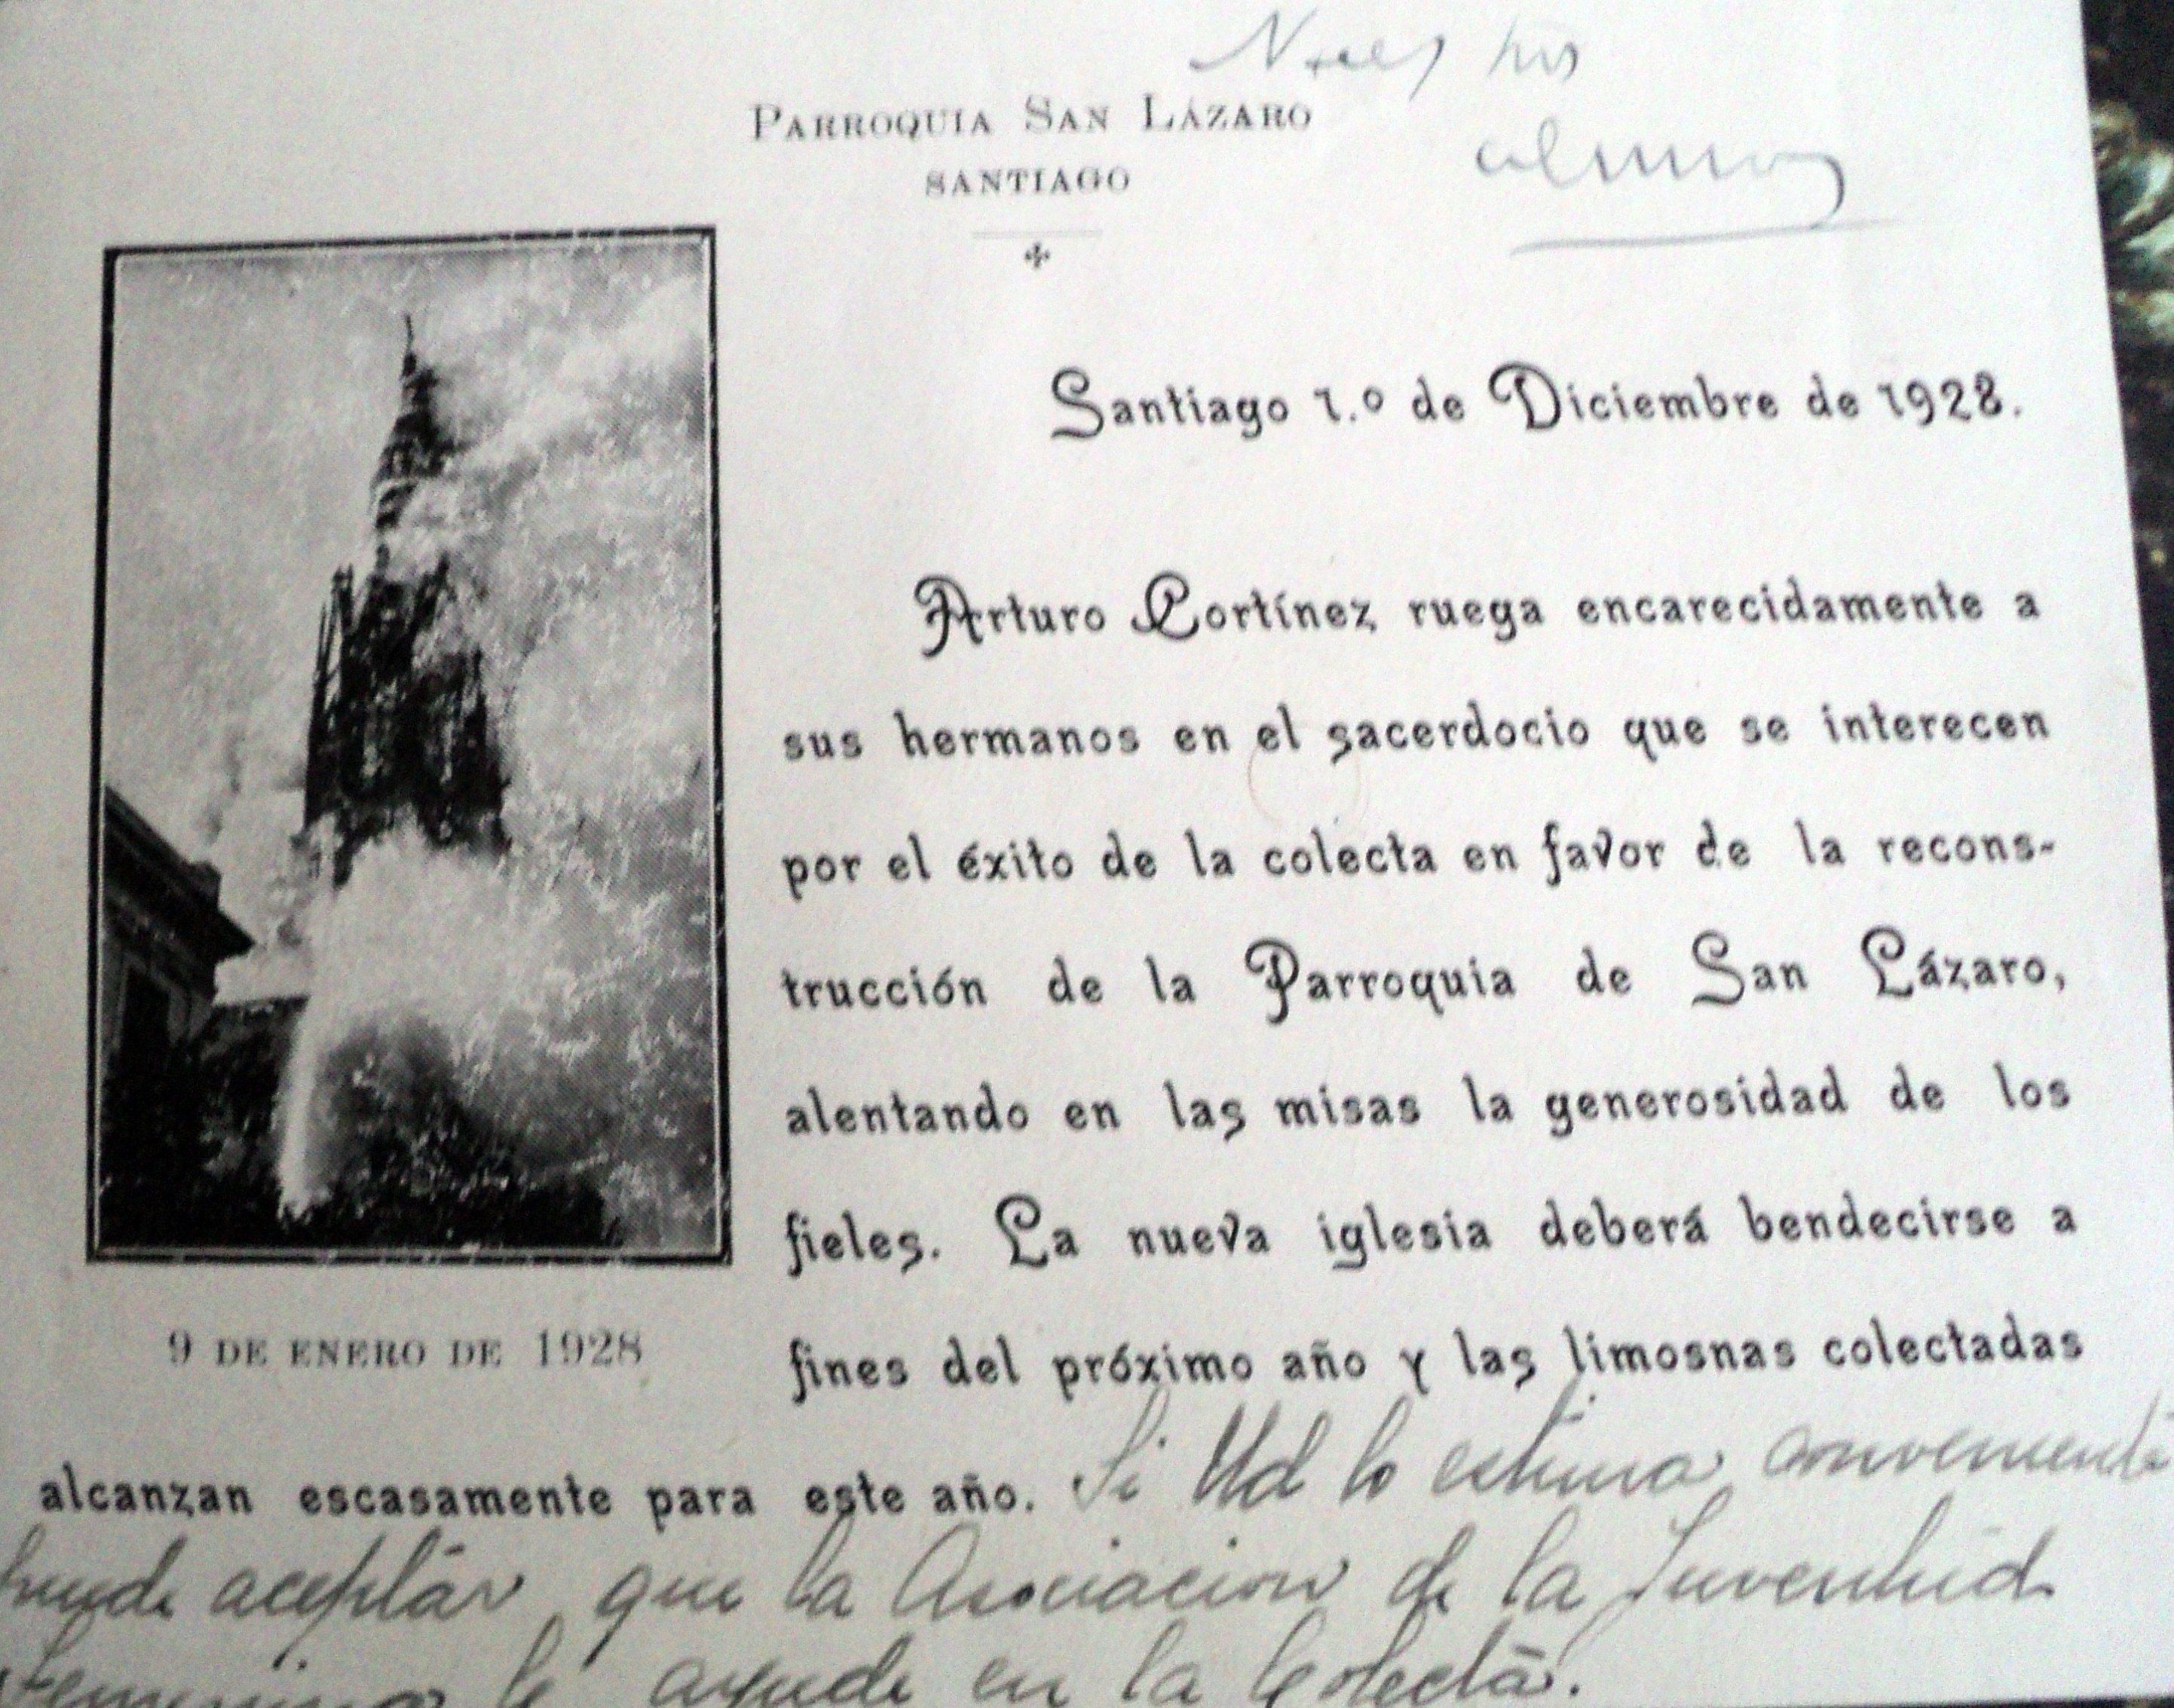 PARROQUIA SAN LÁZARO
SANTIAGO
Santiago 1.º de Diciembre de 1928.
Arturo Cortínez ruega encarecidamente a
sus hermanos en el sacerdocio que se interecen
por el éxito de la colecta en favor de la recons-
trucción de la Parroquia de San Lázaro,
alentando en las misas la generosidad de los
fieles. La nueva iglesia deberá bendecirse a
fines del próximo año y las limosnas colectadas
9 DE ENERO DE 1928
alcanzan escasamente para este año. Si Ud lo estima conveniente
puede aceptar que la Asociacion de la Juventud
Femenina le ayude en la Colecta.